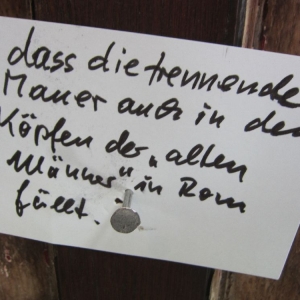 dass die trennende
Mauer auch in den
Köpfen der „alten
Männer" in Rom
fällt.